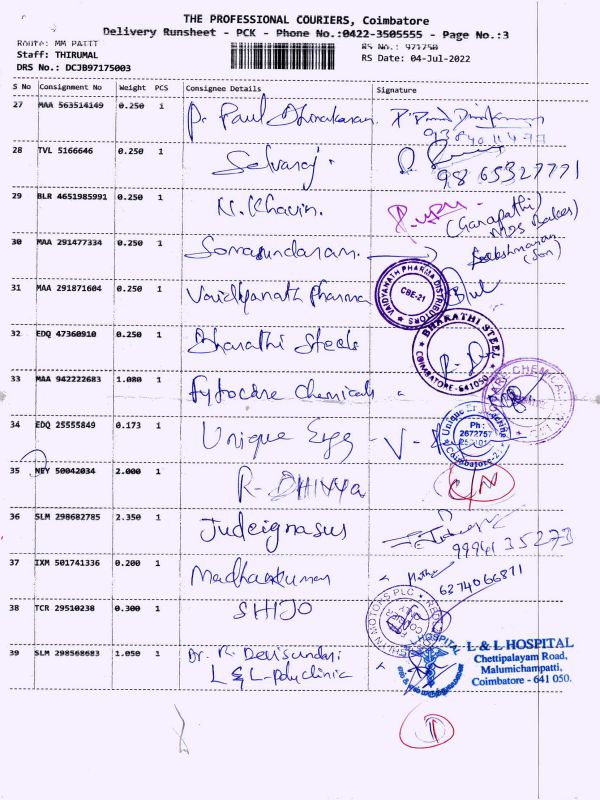 THE PROFESSIONAL COURIERS, Coimbatore
Delivery Runsheet - PCK - Phone No.:0422-3505555 - Page No.:3
Route: MM PATTI
RS No.: 971750
Staff: THIRUMAL
RS Date: 04-Jul-2022
DRS No.: DCJB97175003
S No Consignment No Weight PCS Consignee Details Signature
27 MAA 563514149 0.250 1 P. Paul Dhinakaran
28 TVL 5166646 0.250 1 Selvaraj. 9865327771
29 BLR 4651985991 0.250 1 N. Khavin. (Ganapathi)
30 MAA 291477334 0.250 1 Somasundaram. (Son)
31 MAA 291871604 0.250 1 Vaidyanath Pharma VAIDYANATH PHARMA DISTRIBUTORS CBE-21
32 EDQ 47360910 0.250 1 Bharathi Steels BHARATHI STEEL COIMBATORE-641050
33 MAA 942222683 1.080 1 Fytocare Chemicals
34 EDQ 25555849 0.173 1 Unique Engg Ph: 2672757 Coimbatore-2
35 NEY 50042034 2.000 1 R. DHIVYA
36 SLM 298682785 2.350 1 Judeignasus 9994135273
37 IXM 501741336 0.200 1 Madhankumar 6374066871
38 TCR 29510238 0.300 1 SHIJO
39 SLM 298568683 1.050 1 Dr. R. Devisundari
L & L - Polyclinic
L & L HOSPITAL
Chettipalayam Road,
Malumichampatti,
Coimbatore - 641 050.